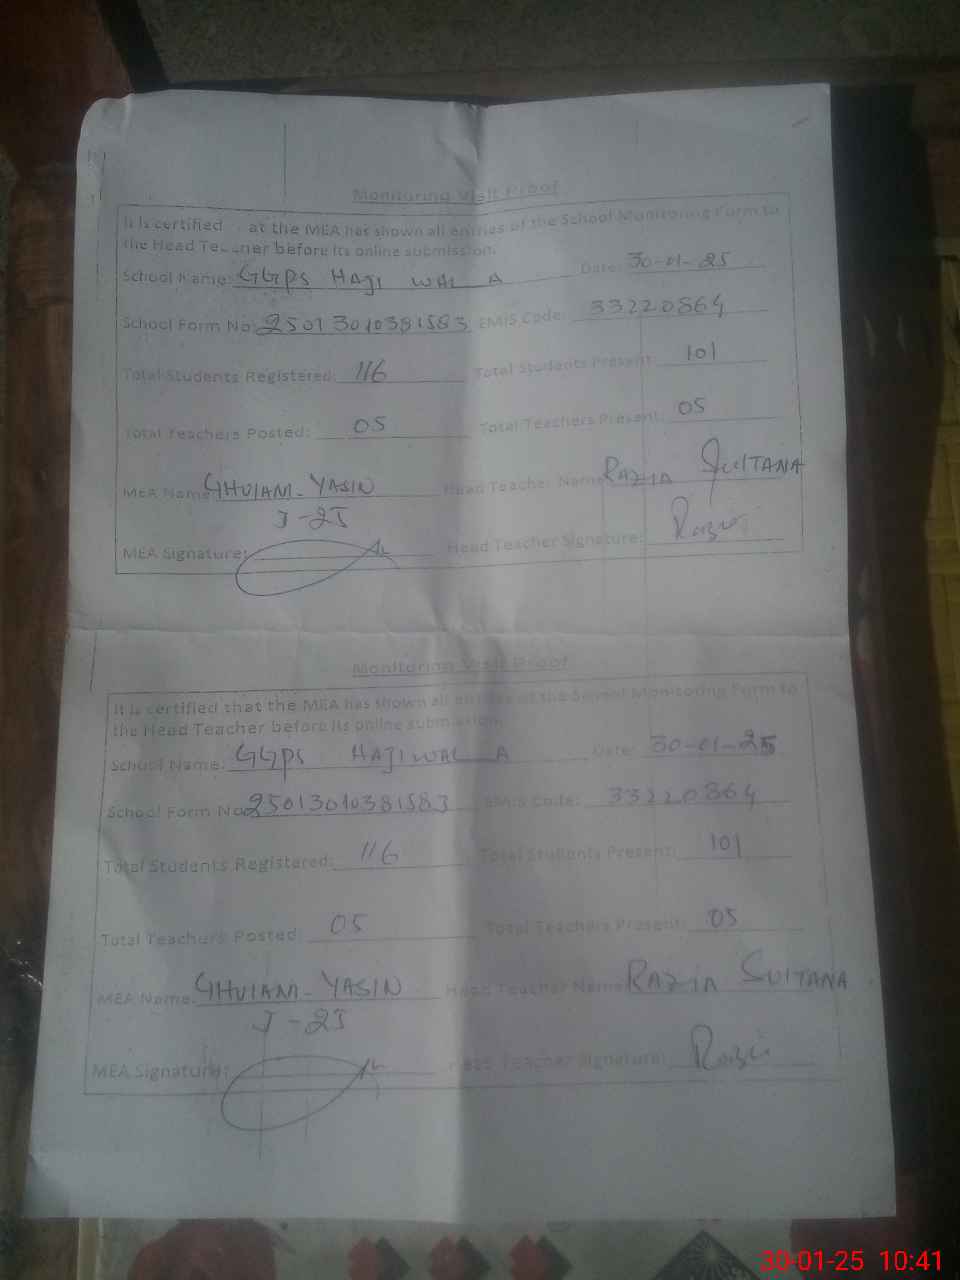 Monitoring Visit Proof
It is certified at the MEA has shown all entries of the School Monitoring Form to
the Head Te ner before its online submission.
School Name: GGPS HAJI WALA Date: 30-01-25
School Form No: 25013010381583 EMIS Code: 33220864
Total Students Registered: 116 Total Students Present: 101
Total Teachers Posted: 05 Total Teachers Present: 05
MEA Name: GHULAM-YASIN Head Teacher Name: RAZIA SULTANA
J-25
MEA Signature: Head Teacher Signature: Razia
Monitoring Visit Proof
It is certified that the MEA has shown all entries of the School Monitoring Form to
the Head Teacher before its online submission.
School Name: GGPS HAJI WALA Date: 30-01-25
School Form No: 25013010381583 EMIS Code: 33220864
Total Students Registered: 116 Total Students Present: 101
Total Teachers Posted: 05 Total Teachers Present: 05
MEA Name: GHULAM-YASIN Head Teacher Name: RAZIA SULTANA
J-25
MEA Signature: Head Teacher Signature: Razia
30-01-25 10:41